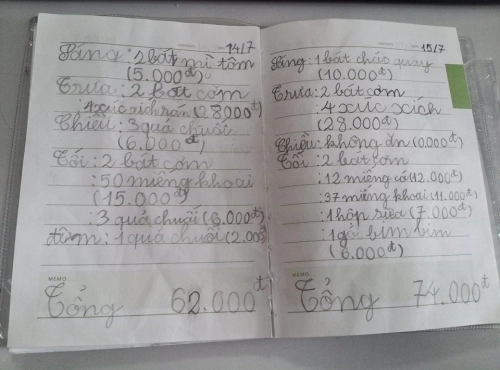 14/7
Sáng: 2 bát mì tôm
(5.000đ)
Trưa: 2 bát cơm
4 xúc xích rán (28000đ)
Chiều: 3 quả chuối
(6.000đ)
Tối: 2 bát cơm
: 50 miếng khoai
(15.000đ)
: 3 quả chuối (6.000đ)
đêm: 1 quả chuối (2.000đ)
MEMO
Tổng 62.000đ
15/7
Sáng: 1 bát cháo quay
(10.000đ)
Trưa: 2 bát cơm
: 4 xúc xích
(28.000đ)
Chiều: không ăn (0.000đ)
Tối: 2 bát cơm
: 12 miếng cá (12.000đ)
: 37 miếng khoai (11.000đ)
: 1 hộp sữa (7.000đ)
: 1 gói bim bim
(6.000đ)
MEMO
Tổng 74.000đ